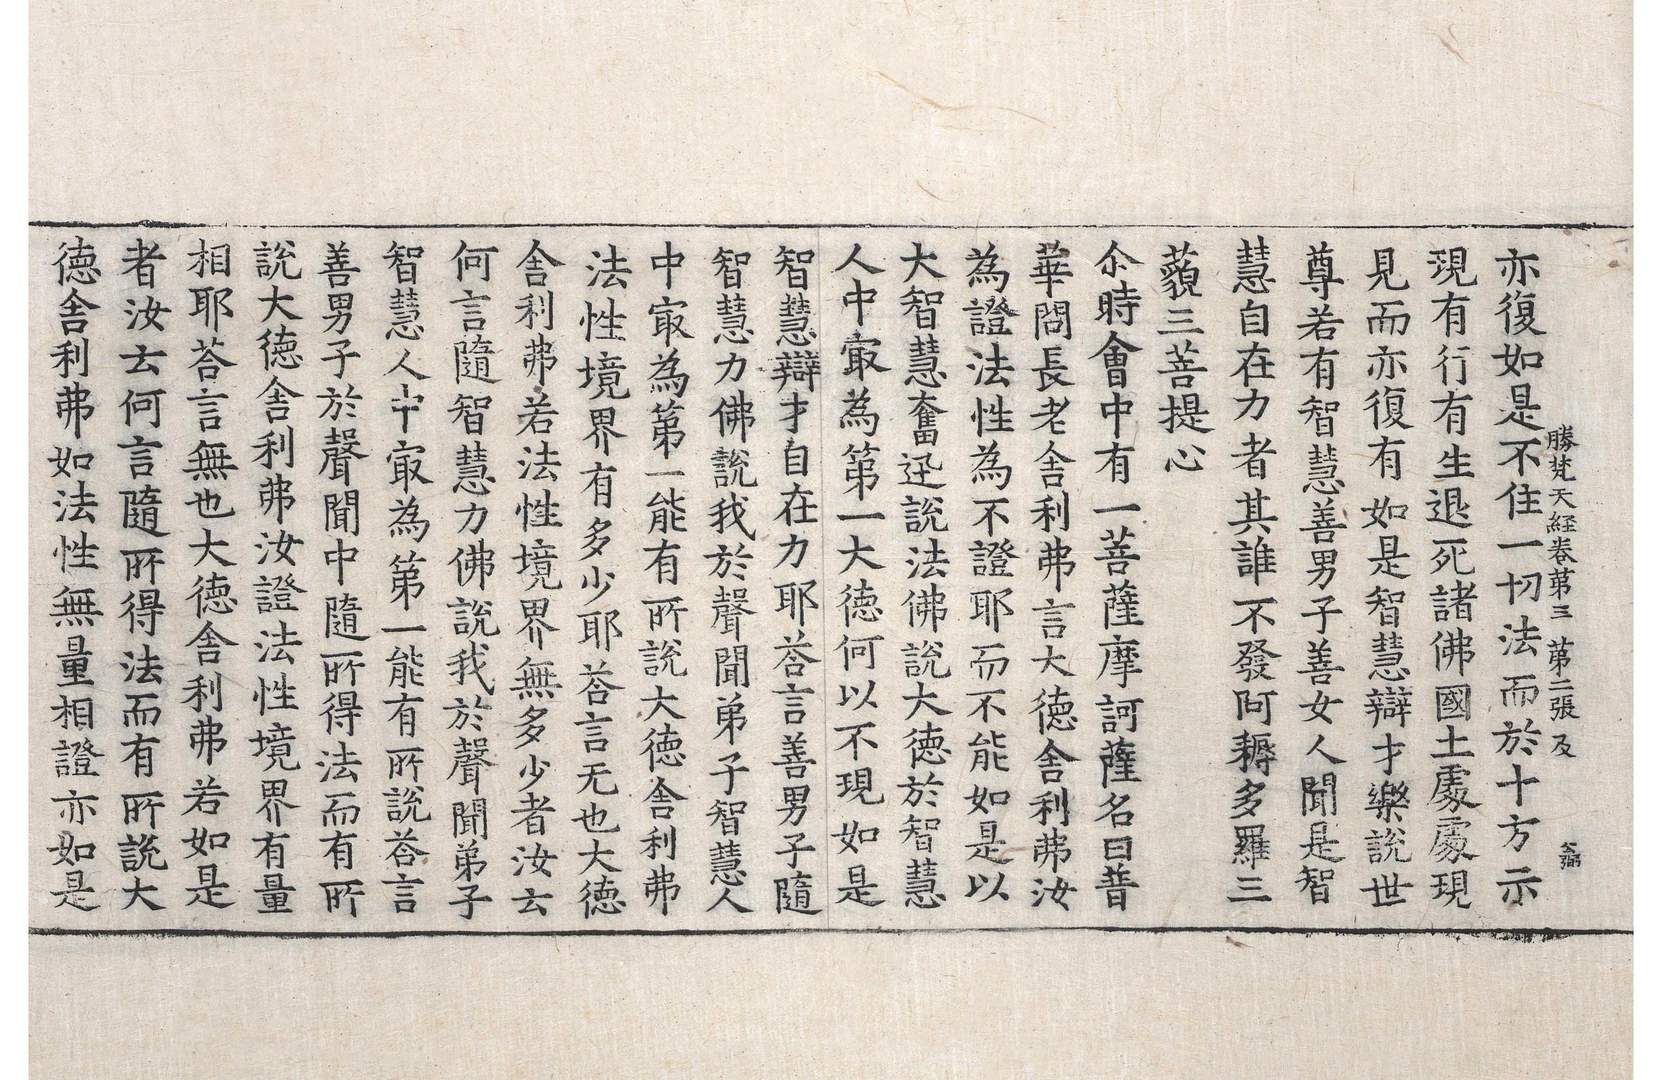 勝梵天経卷第三 第二張 及
亦復如是不住一切法而於十方示
現有行有生退死諸佛國土處處現
見而亦復有如是智慧辯才樂說世
尊若有智慧善男子善女人聞是智
慧自在力者其誰不發阿耨多羅三
藐三菩提心
尒時會中有一菩薩摩訶薩名曰普
華問長老舍利弗言大德舍利弗汝
為證法性為不證耶而不能如是以
大智慧奮迅說法佛說大德於智慧
人中㝡為第一大德何以不現如是
智慧辯才自在力耶荅言善男子隨
智慧力佛說我於聲聞弟子智慧人
中㝡為第一能有所說大德舍利弗
法性境界有多少耶荅言无也大德
舍利弗若法性境界無多少者汝云
何言隨智慧力佛說我於聲聞弟子
智慧人中㝡為第一能有所說荅言
善男子於聲聞中隨所得法而有所
說大德舍利弗汝證法性境界有量
相耶荅言無也大德舍利弗若如是
者汝云何言隨所得法而有所說大
德舍利弗如法性無量相證亦如是